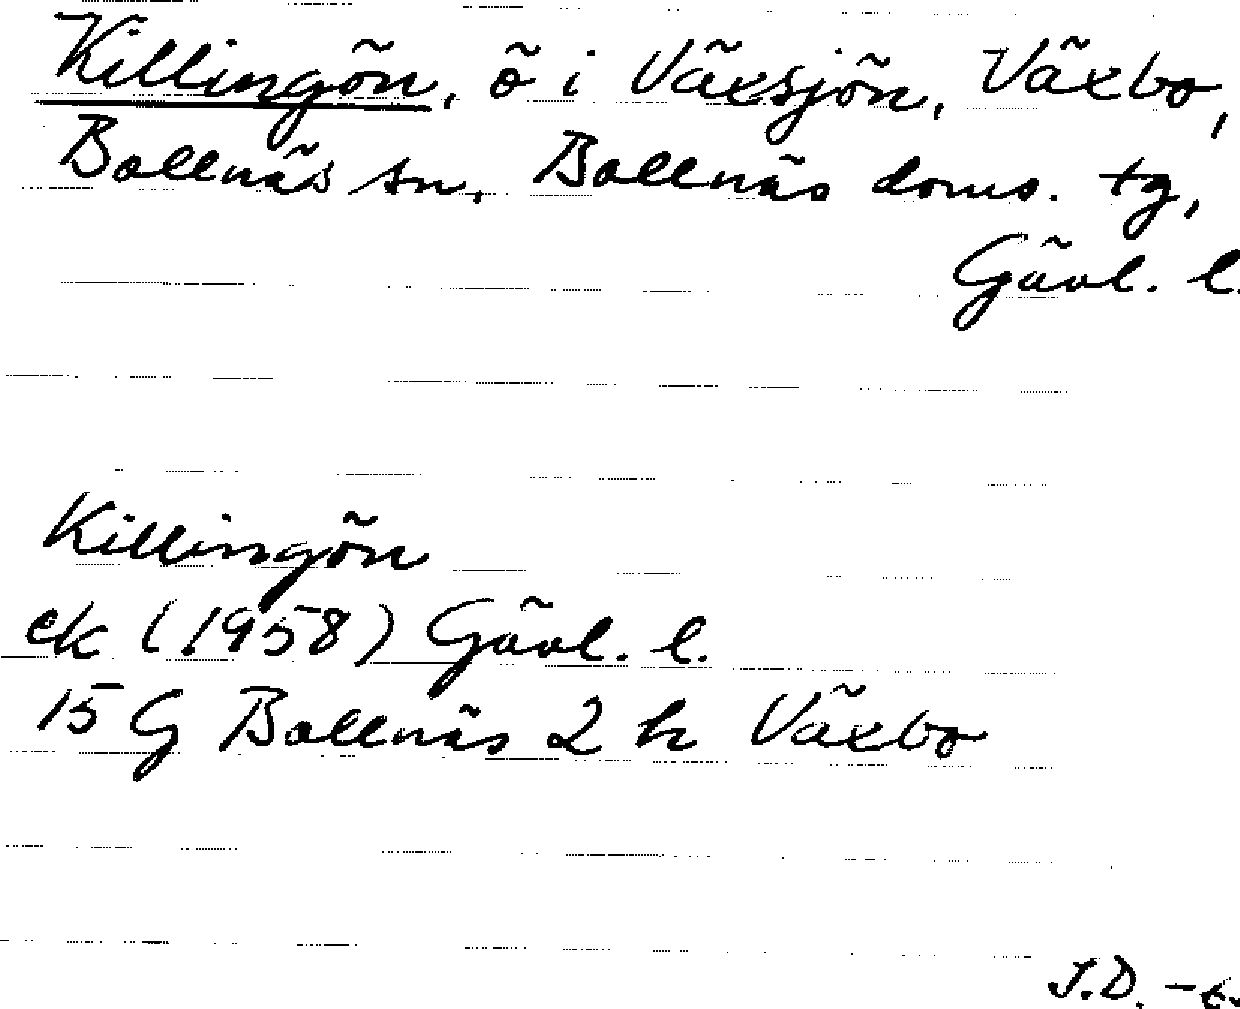 Killingön, ö i Växsjön, Växbo,
Bollnäs sn, Bollnäs doms. tg,
Gävl. l.
Killingön
ek (1958) Gävl. l.
15 G Bollnäs 2 h Växbo
J.D.